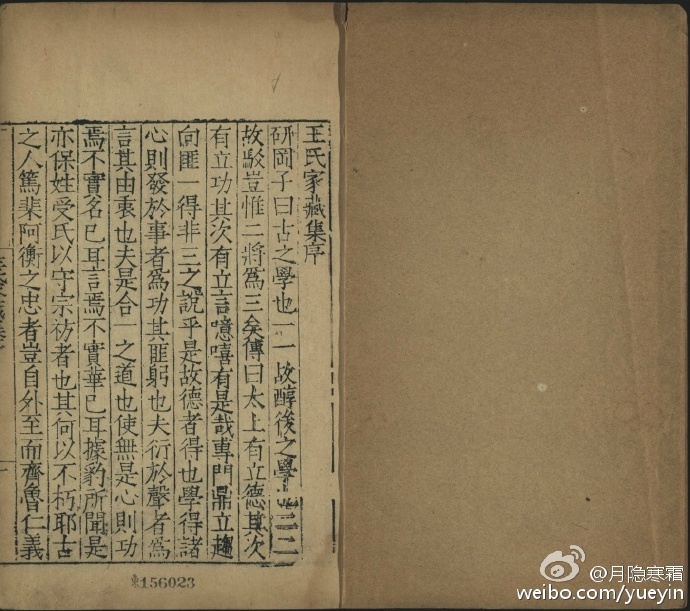 王氏家藏集序
研岡子曰古之學也一一故醇後之學也二二
故駁豈惟二將為三矣傳曰太上有立德其次
有立功其次有立言噫嘻有是哉專門鼎立趨
向匪一得非三之說乎是故德者得也學得諸
心則發於事者為功其匪躬也夫衍於聲者為
言其由衷也夫是合一之道也使無是心則功
焉不實名已耳言焉不實華已耳據豹所聞是
亦保姓受氏以守宗祊者也其何以不朽耶古
之人篤棐阿衡之忠者豈自外至而齊魯仁義
156023
@月隐寒霜
weibo.com/yueyin